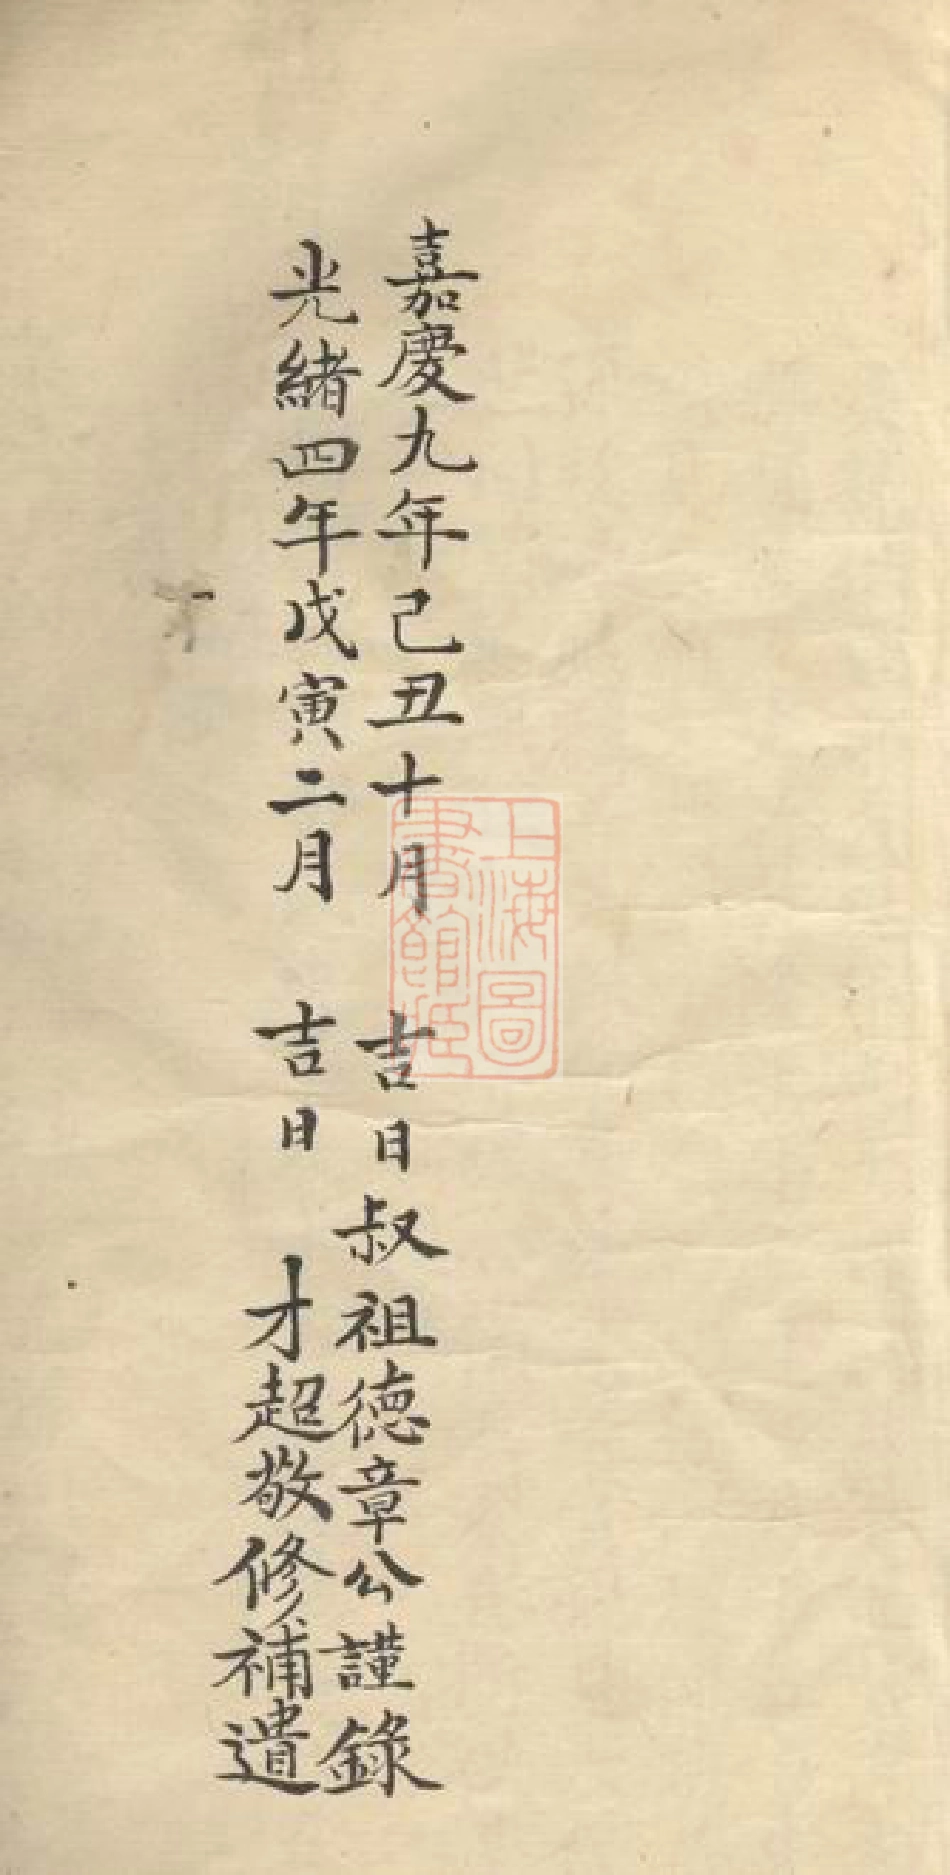 嘉慶九年己丑十月 吉日叔祖德章公謹錄
光緒四年戊寅二月 吉日 才超敬修補遺
上海圖
書館